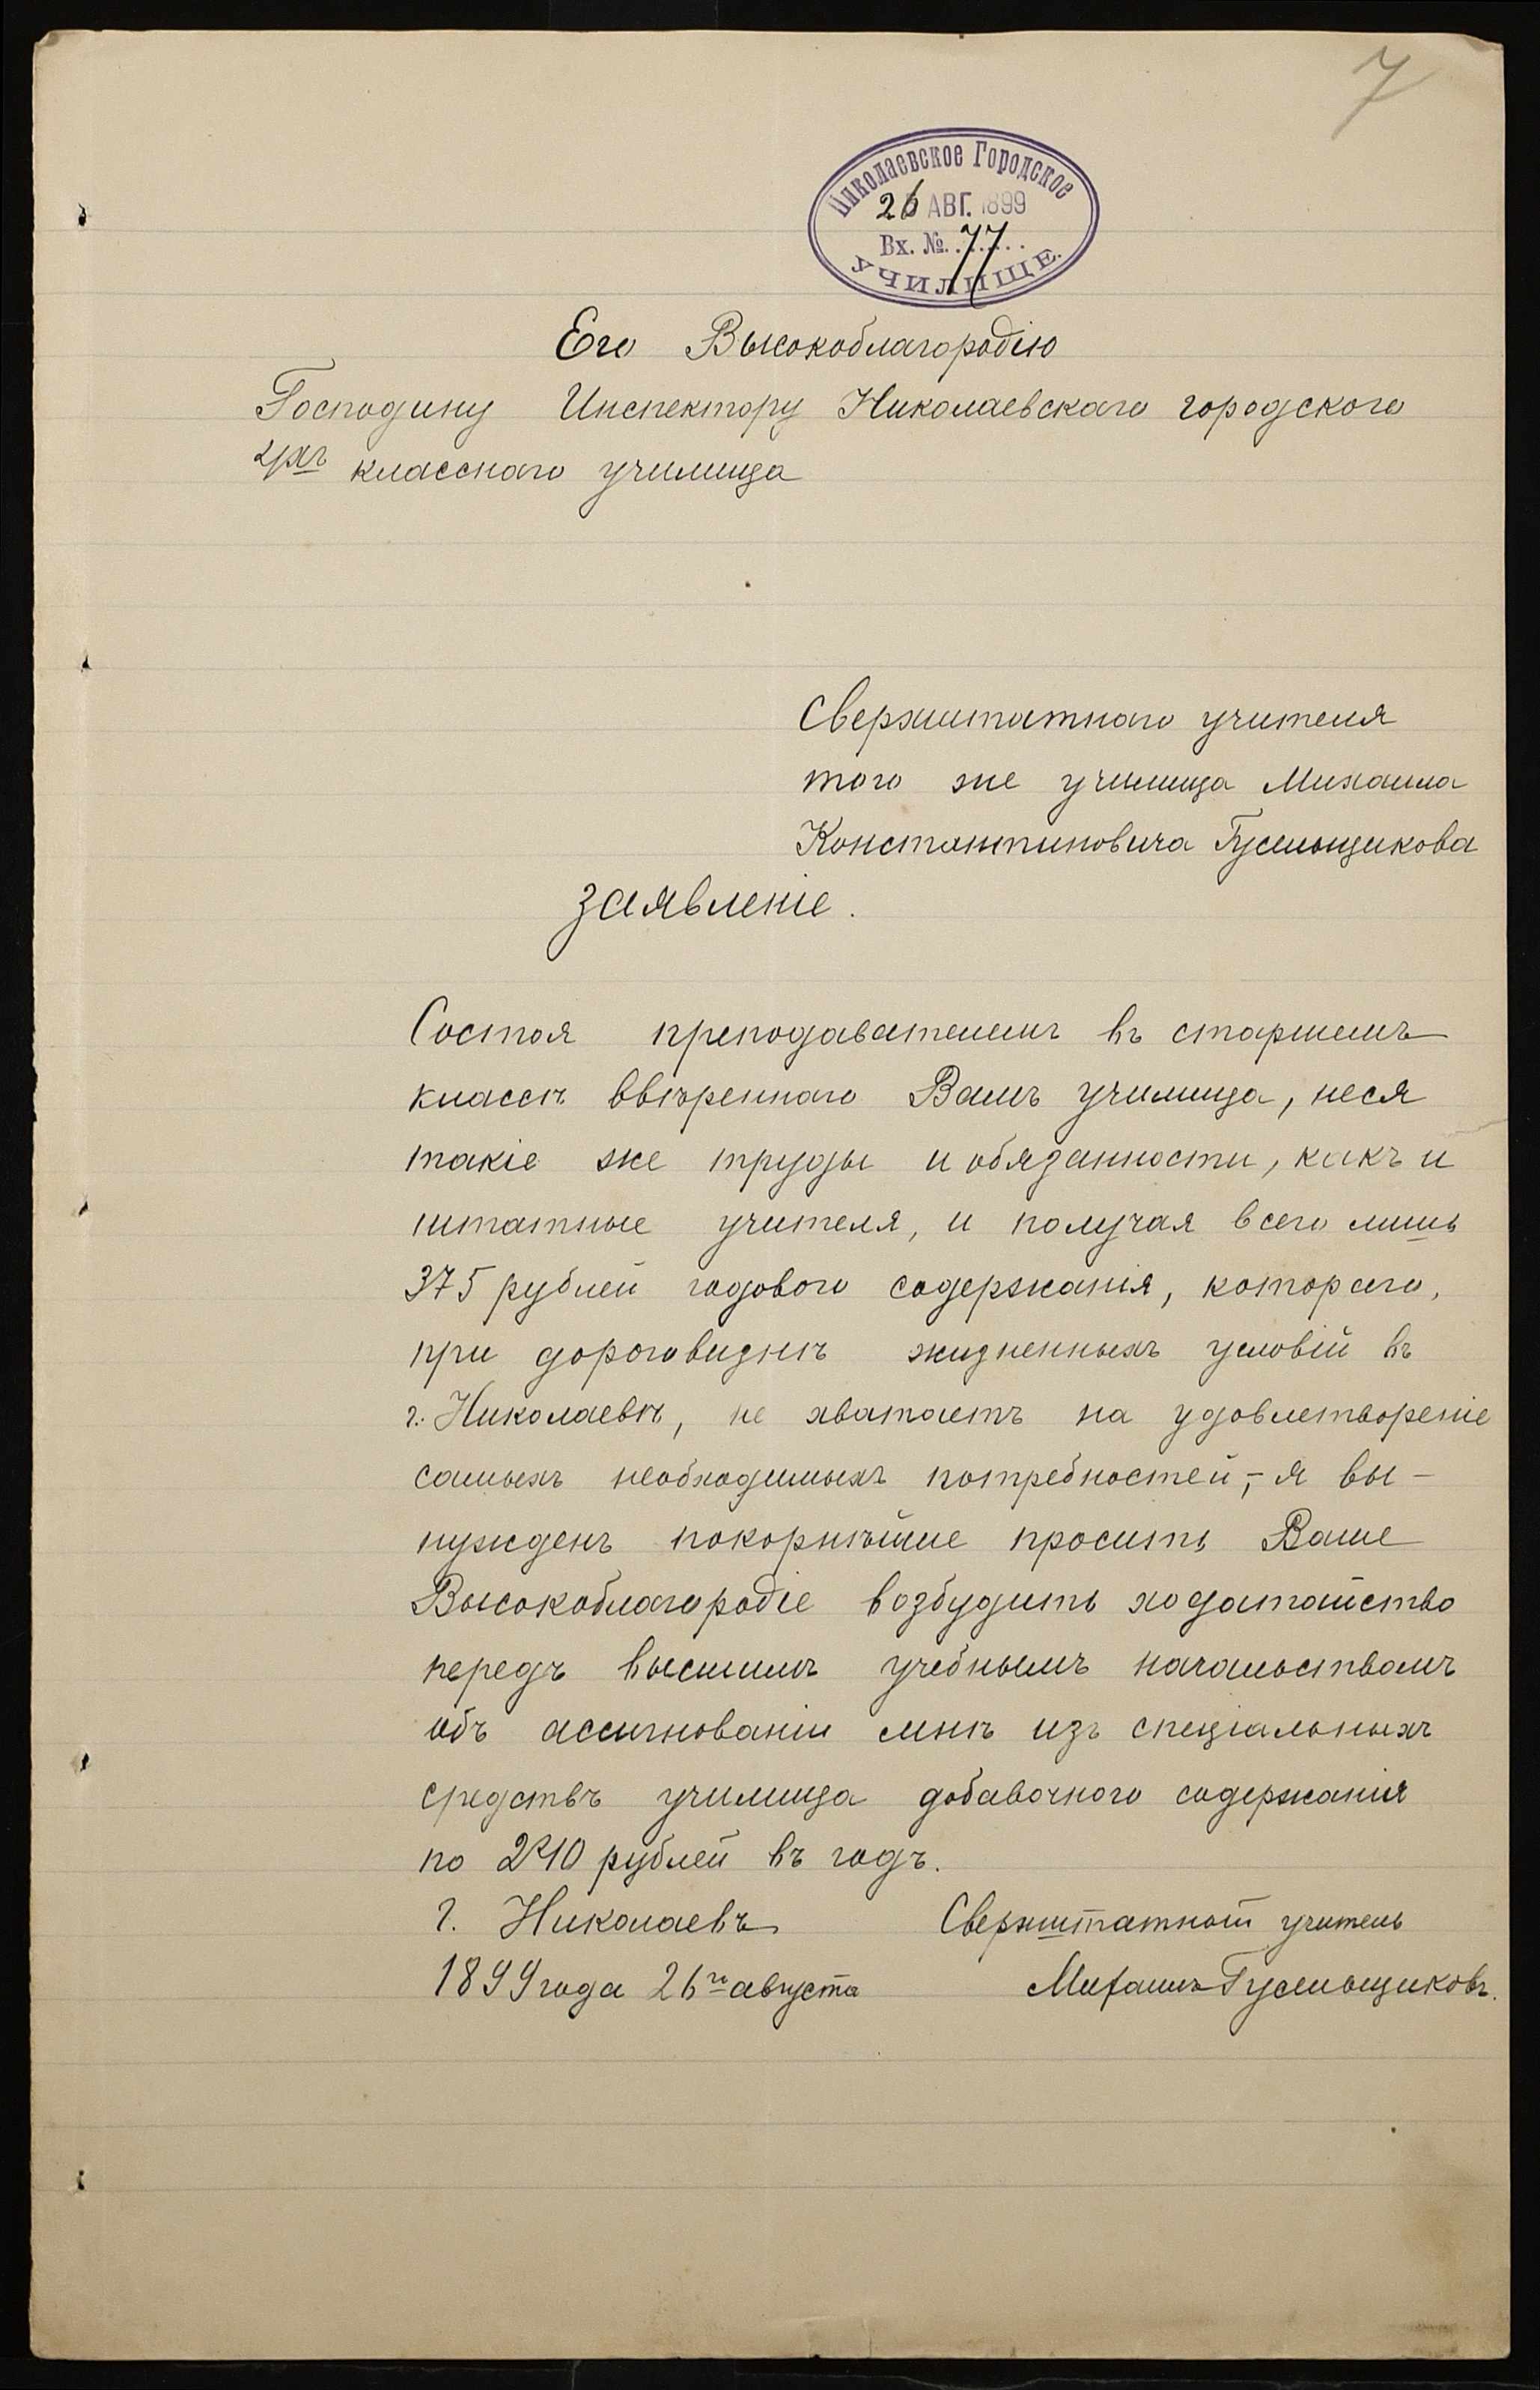 7
Николаевское Городское
26 АВГ. 1899
Вх. № 77
УЧИЛИЩЕ.
Его Высокоблагородію
Господину Инспектору Николаевскаго городского
4хъ класснаго училища
Сверхштатнаго учителя
того же училища Михаила
Константиновича Гусельщикова
Заявленіе.
Состоя преподавателемъ въ старшемъ
классѣ ввѣреннаго Вамъ училища, неся
такіе же труды и обязанности, какъ и
штатные учителя, и получая всего лишь
375 рублей годового содержанія, котораго,
при дороговизнѣ жизненныхъ условій въ
г. Николаевѣ, не хватаетъ на удовлетвореніе
самыхъ необходимыхъ потребностей,- я вы-
нужденъ покорнѣйше просить Ваше
Высокоблагородіе возбудить ходатайство
передъ высшимъ учебнымъ начальствомъ
объ ассигнованіи мнѣ изъ спеціальныхъ
средствъ училища добавочного содержанія
по 210 рублей въ годъ.
г. Николаевъ Сверхштатный учитель
1899 года 26го августа Михаилъ Гусельщиковъ.